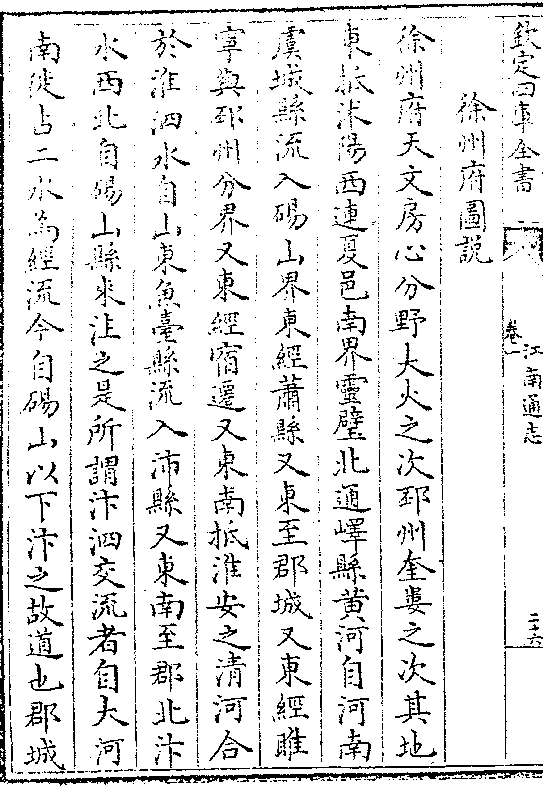 欽定四庫全書
江南通志
卷一
二十六
徐州府圖説
徐州府天文房心分野大火之次邳州奎婁之次其地
東抵沭陽西連夏邑南界靈璧北通嶧縣黄河自河南
虞城縣流入碭山界東經蕭縣又東至郡城又東經睢
寧與邳州分界又東經宿遷又東南抵淮安之清河合
於淮泗水自山東魚臺縣流入沛縣又東南至郡北汴
水西北自碭山縣來注之是所謂汴泗交流者自大河
南徙占二水為經流今自碭山以下汴之故道也郡城